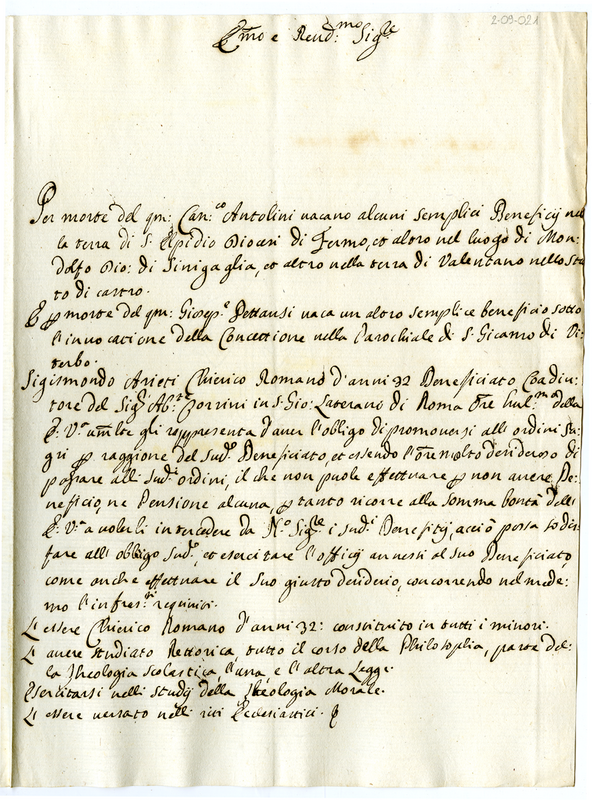 2-09-021
E.mo e Reud.mo Sig.re
Per morte del qm: Can.co Antolini uacano alcuni semplici Beneficij nel
la terra di S. Elpidio Diocesi di Fermo, et altro nel luogo di Mon:
dolfo Dio: di Sinigaglia, et altro nella terra di Valentano nello Sta
to di castro.
E p morte del qm: Giosep.e Pettausi uaca un altro semplice beneficio sotto
l'inuocatione della Concettione nella Parochiale di S. Giacomo di Vi:
terbo.
Sigismondo Arieti Chierico Romano d'anni 32 Beneficiato Coadiu:
tore del Sig.r Ab.te Porrini in S. Gio: Laterano di Roma Ore hul.mo della
E. V.a um.lte gli rappresenta d'auer l'obligo di promouersi alli ordini Sa:
gri p raggione del sud.o Beneficiato, et essendo l'Ore molto desideroso di
passare alli sud.i ordini, il che non puole effettuare p non auere Be:
neficio, ne Pensione alcuna, p tanto ricorre alla somma bontà dell'
E. V.a a volerli intercedere da N.o Sig.re i sud.i Beneficij, acciò possa sodis:
fare all' obbligo sud.o, et esercitare l'officij annessi al suo Beneficiato,
come anche effettuare il suo giusto desiderio, concorrendo nel mede:
mo l'infras.ti requisiti.
L' essere Chierico Romano d'anni 32: constituito in tutti i minori.
L' auere studiato Rettorica tutto il corso della Philosophia, parte del:
la Theologia scolastica, l'una, e l'altra Legge.
Esercitarsi nelli studij della Theologia Morale.
L' essere uersato nelli riti Ecclesiastici.